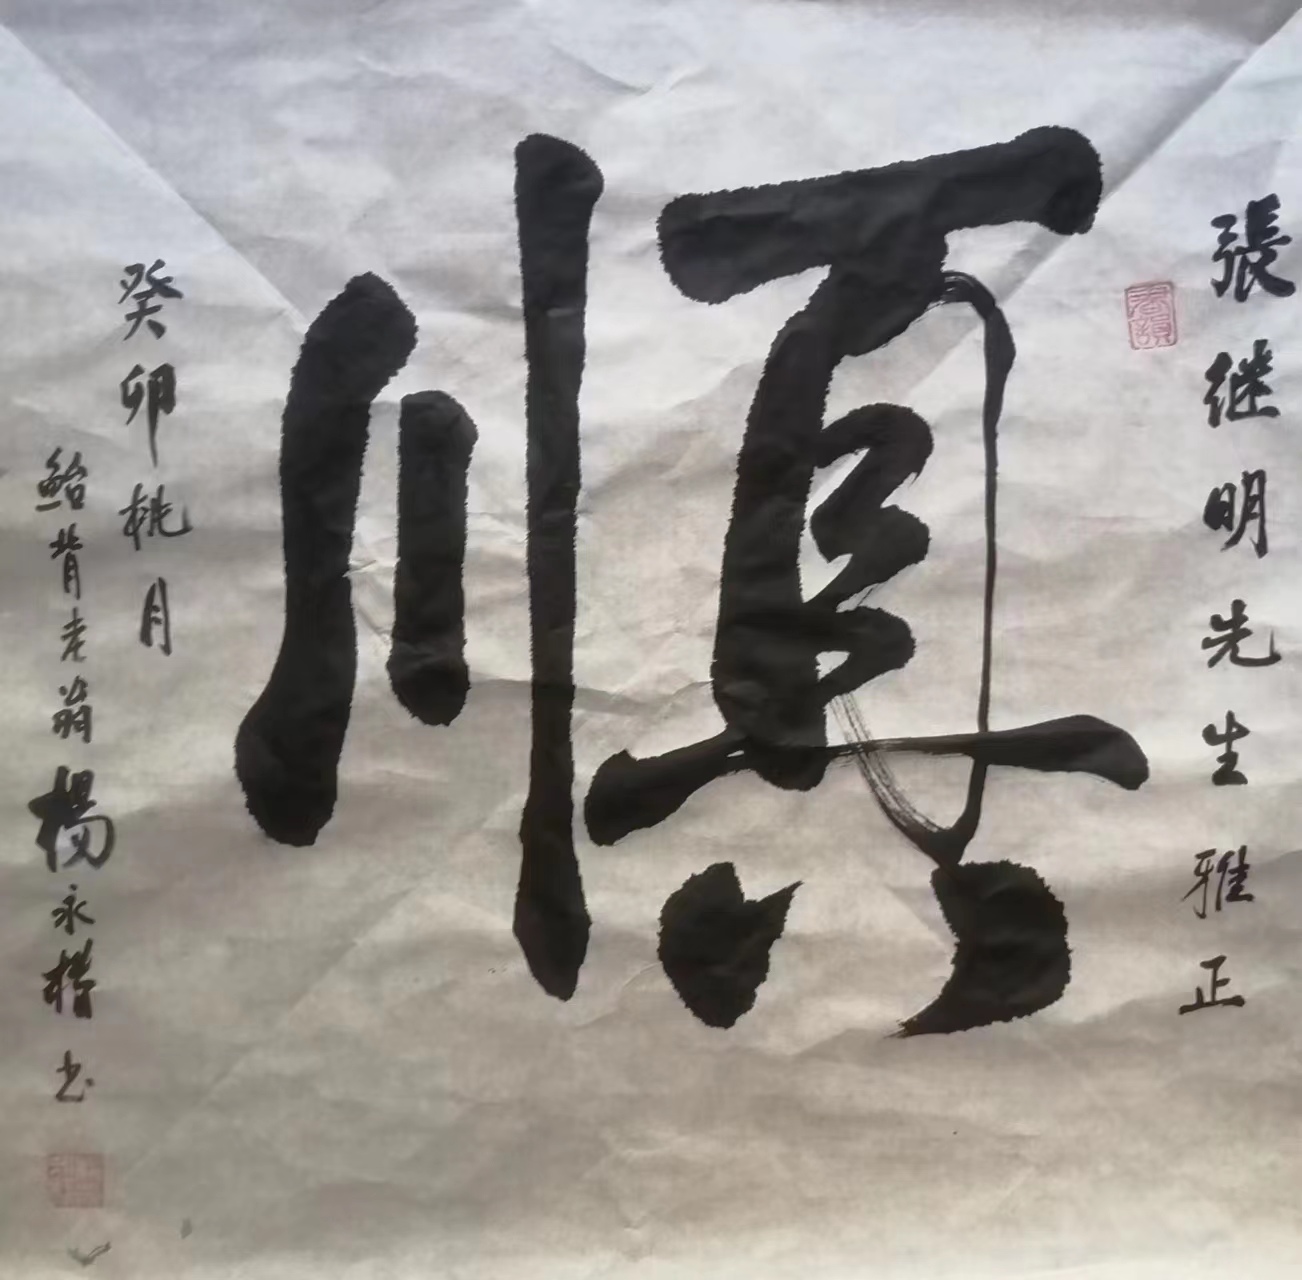 張继明先生雅正
順
癸卯桃月
鲐背老翁楊永楷书